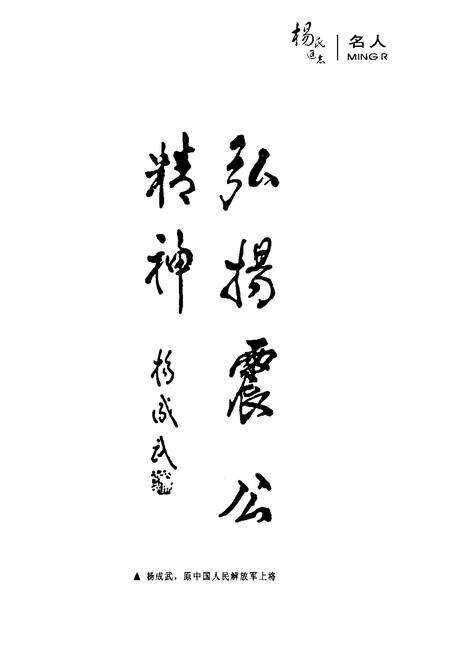 杨氏通志
名人
MINGR
弘揚震公
精神
杨成武
▲ 杨成武，原中国人民解放军上将